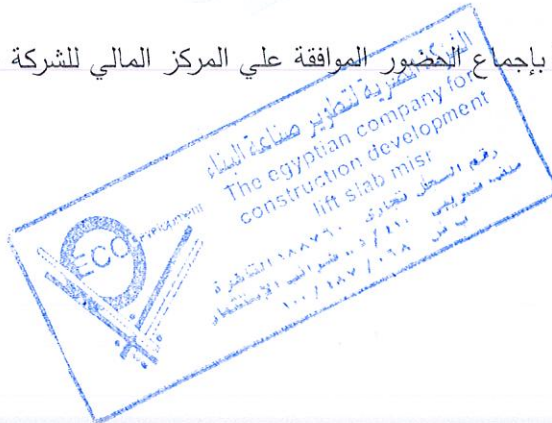 بإجماع الحضور الموافقة علي المركز المالي للشركة
الشركة المصرية لتطوير صناعة البناء
The egyptian company for
construction development
lift slab misr
رقم السجل تجارى ١٨٨٧٦٠ القاهرة
ملف ضريبى
ECO